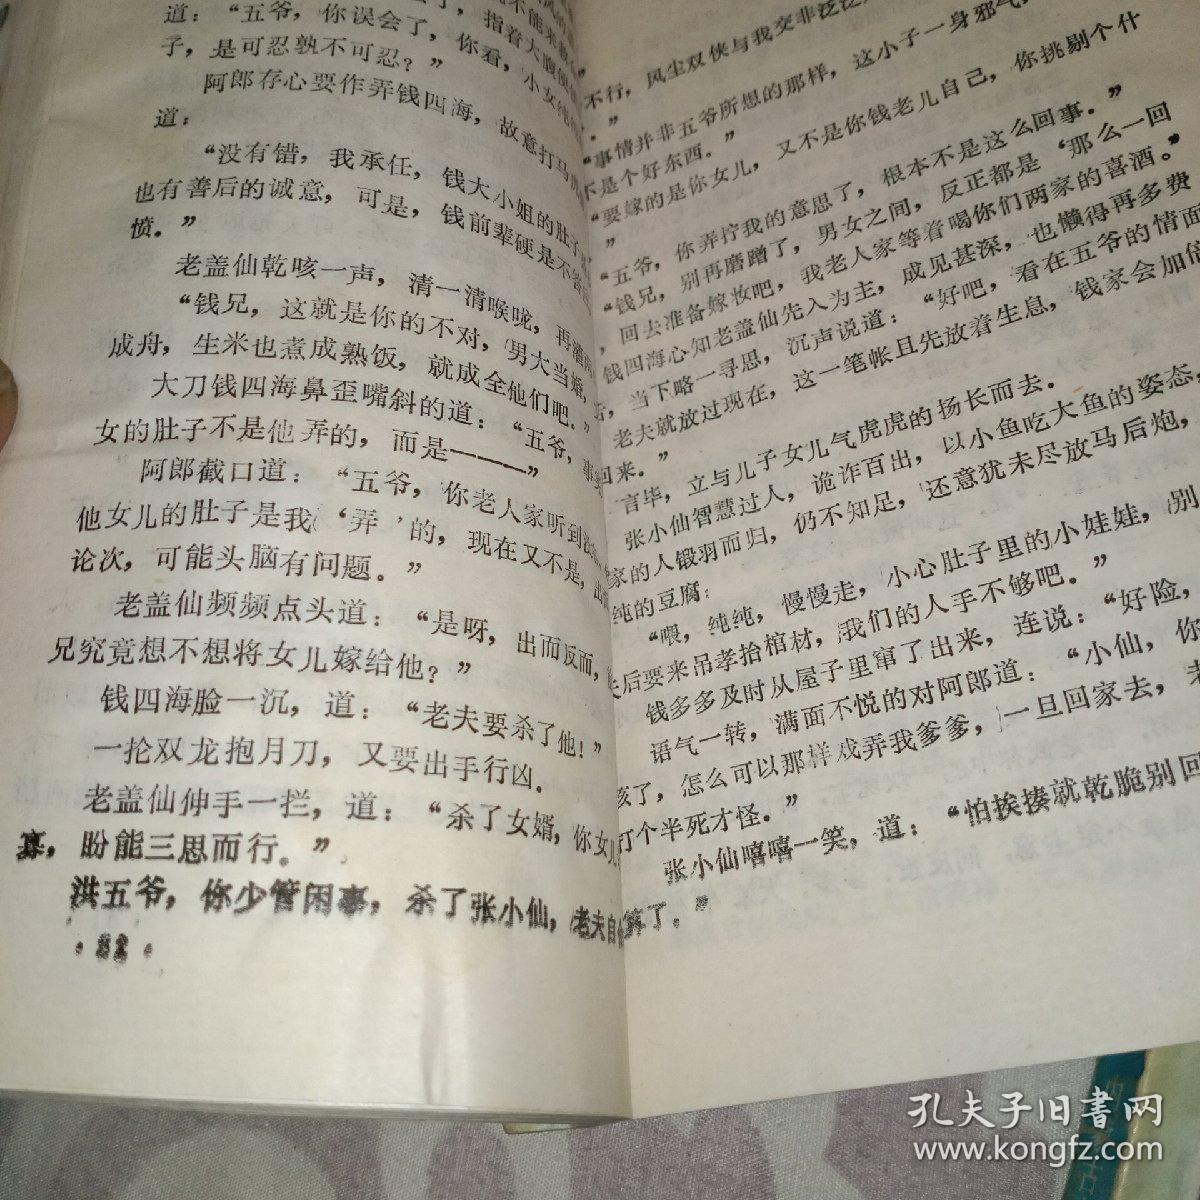 道：“五爷，你误会了，你看，小女
子，是可忍孰不可忍？”
阿郎存心要作弄钱四海，故意打马
道：
“没有错，我承任，钱大小姐的肚子
也有善后的诚意，可是，钱前辈硬是不答
愤。”
老盖仙乾咳一声，清一清喉咙，再
“钱兄，这就是你的不对，男大当婚，
成舟，生米也煮成熟饭，就成全他们吧。”
大刀钱四海鼻歪嘴斜的道：“五爷，事
女的肚子不是他弄的，而是———”
阿郎截口道：“五爷，你老人家听到
他女儿的肚子是我‘弄’的，现在又不是，出
论次，可能头脑有问题。”
老盖仙频频点头道：“是呀，出而反而，
兄究竟想不想将女儿嫁给他？”
钱四海脸一沉，道：“老夫要杀了他！”
一抡双龙抱月刀，又要出手行凶．
老盖仙伸手一拦，道：“杀了女婿，你女儿
寡，盼能三思而行。”
洪五爷，你少管闲事，杀了张小仙，老夫自
不行，风尘双侠与我交非泛泛
“事情并非五爷所想的那样，这小子一身邪气，
不是个好东西．”
“要嫁的是你女儿，又不是你钱老儿自己，你挑剔个什
”
“五爷，你弄拧我的意思了，根本不是这么回事．”
“钱兄，别再磨蹭了，男女之间，反正都是‘那么一回
，回去准备嫁妆吧，我老人家等着喝你们两家的喜酒。”
钱四海心知老盖仙先入为主，成见甚深，也懒得再多费
舌，当下略一寻思，沉声说道：“好吧，看在五爷的情面
老夫就放过现在，这一笔帐且先放着生息，钱家会加倍
回来．”
言毕，立与儿子女儿气虎虎的扬长而去．
张小仙智慧过人，诡诈百出，以小鱼吃大鱼的姿态，
家的人锻羽而归，仍不知足，还意犹未尽放马后炮，
纯的豆腐：
“喂，纯纯，慢慢走，小心肚子里的小娃娃，别
后要来吊孝抬棺材，我们的人手不够吧．”
钱多多及时从屋子里窜了出来，连说：“好险，
语气一转，满面不悦的对阿郎道：“小仙，你
该了，怎么可以那样戏弄我爹爹，一旦回家去，老
打个半死才怪．”
张小仙嘻嘻一笑，道：“怕挨揍就乾脆别回
算了．”
孔夫子旧书网
www.kongfz.com